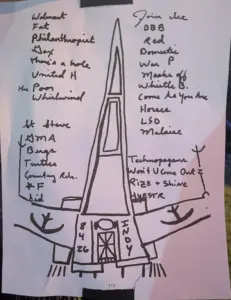 Walmart
Fat
Philanthropist
There's a hole
United H
The Poor
Whirlwind
St Steve
GMA
Bugs
Turtles
Country Rds.
#F
Join Ice
DBB
Red
Domestic
War P
Masks off
Whistle B.
Come As You Are
Horses
LSD
Malaise
Won't U Come Out 2
+ Shine
8
4
26
INDY